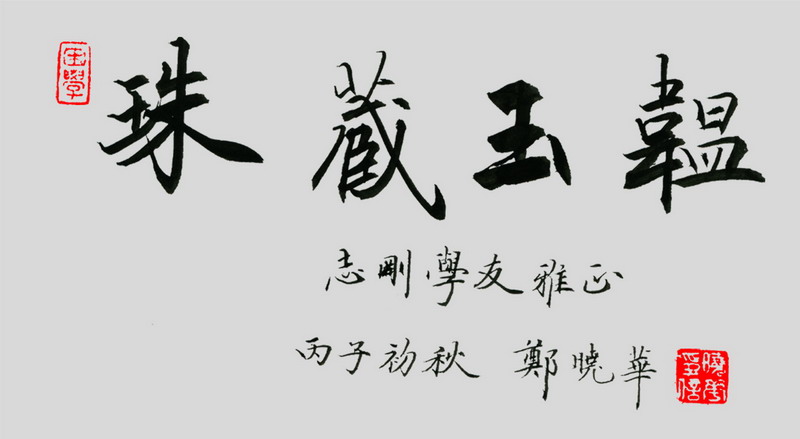 韞玉藏珠
志剛學友雅正
丙子初秋 鄭曉華
曉華印信